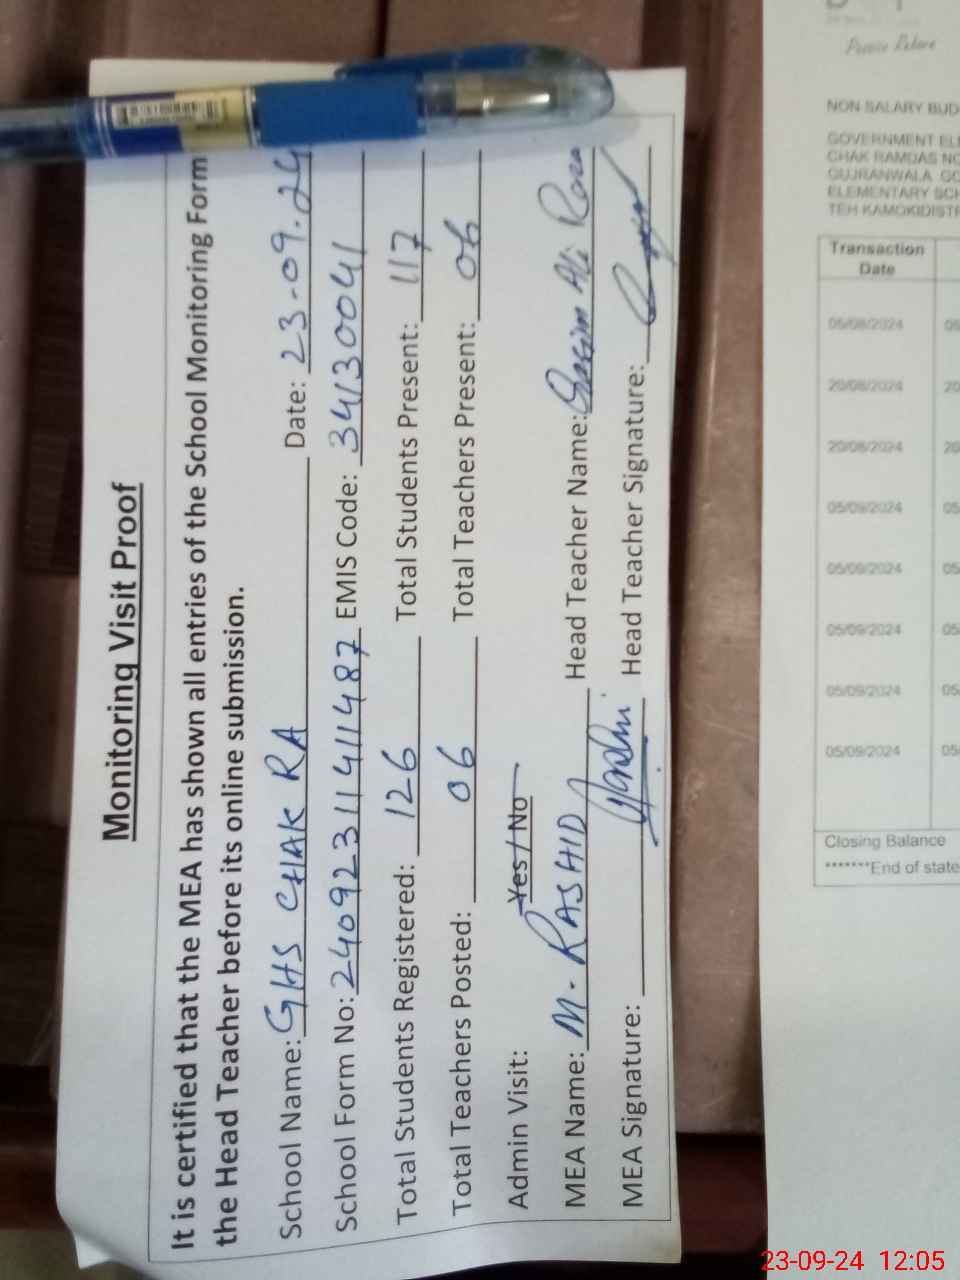 Monitoring Visit Proof
It is certified that the MEA has shown all entries of the School Monitoring Form
the Head Teacher before its online submission.
School Name: GHS CHAK RA Date: 23-09-24
School Form No: 240923114111487 EMIS Code: 34130041
Total Students Registered: 126 Total Students Present: 117
Total Teachers Posted: 06 Total Teachers Present: 06
Admin Visit: Yes / No
MEA Name: M. RASHID Head Teacher Name: Qasim Ali Raza
MEA Signature: Head Teacher Signature:
NON SALARY BUD
GOVERNMENT ELE
CHAK RAMDAS NO
GUJRANWALA GO
ELEMENTARY SCH
TEH KAMOKIDISTR
Transaction
Date
05/08/2024 05
20/08/2024 20
20/08/2024 20
05/09/2024 05
05/09/2024 05
05/09/2024 05
05/09/2024 05
05/09/2024 05
Closing Balance
*******End of state
23-09-24 12:05